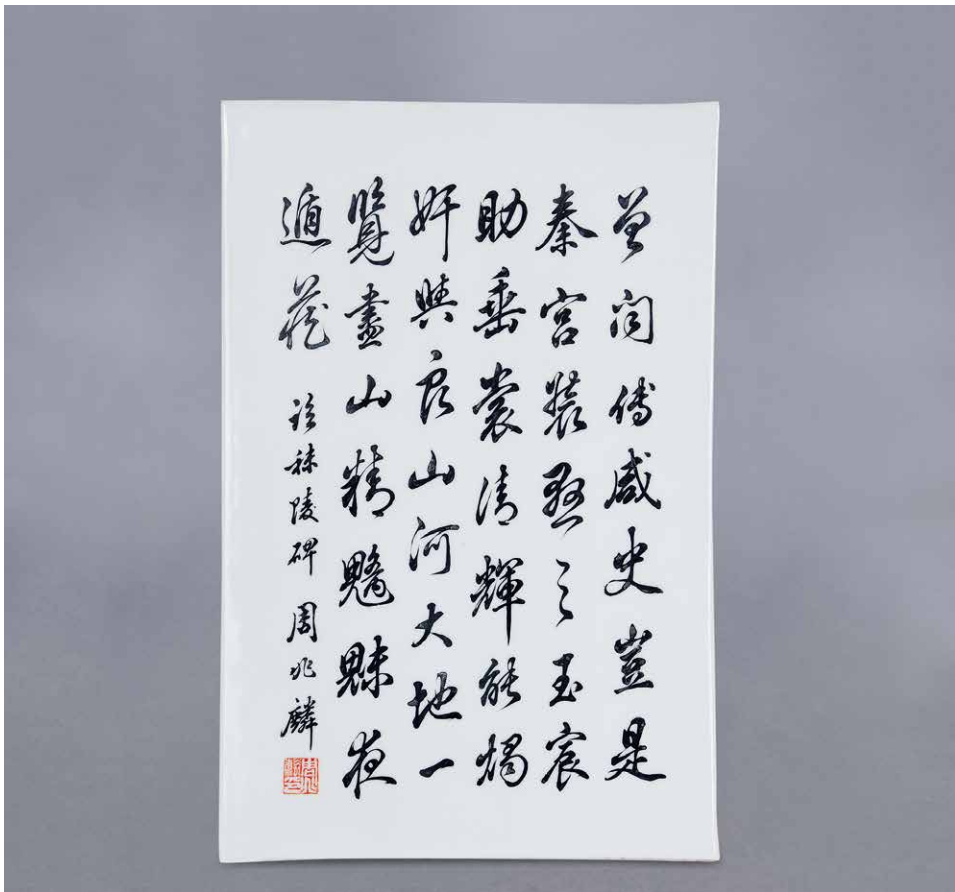 曾闻傅咸史岂是
秦宫装悬之玉宸
助垂裳清辉能烛
奸与良山河大地一
览尽山精魑魅夜
遁藏
秣陵碑 周兆麟